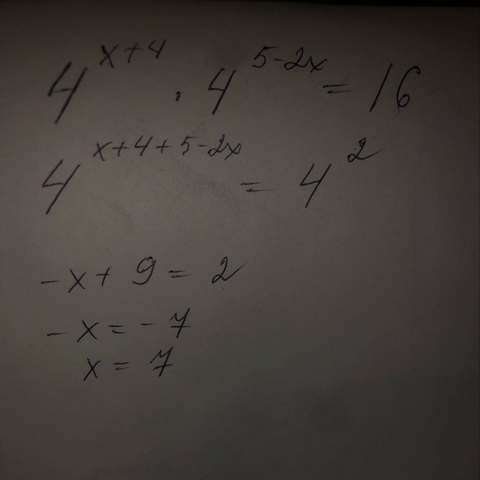 4^{x+4} · 4^{5-2x} = 16
4^{x+4+5-2x} = 4^2
-x + 9 = 2
-x = -7
x = 7